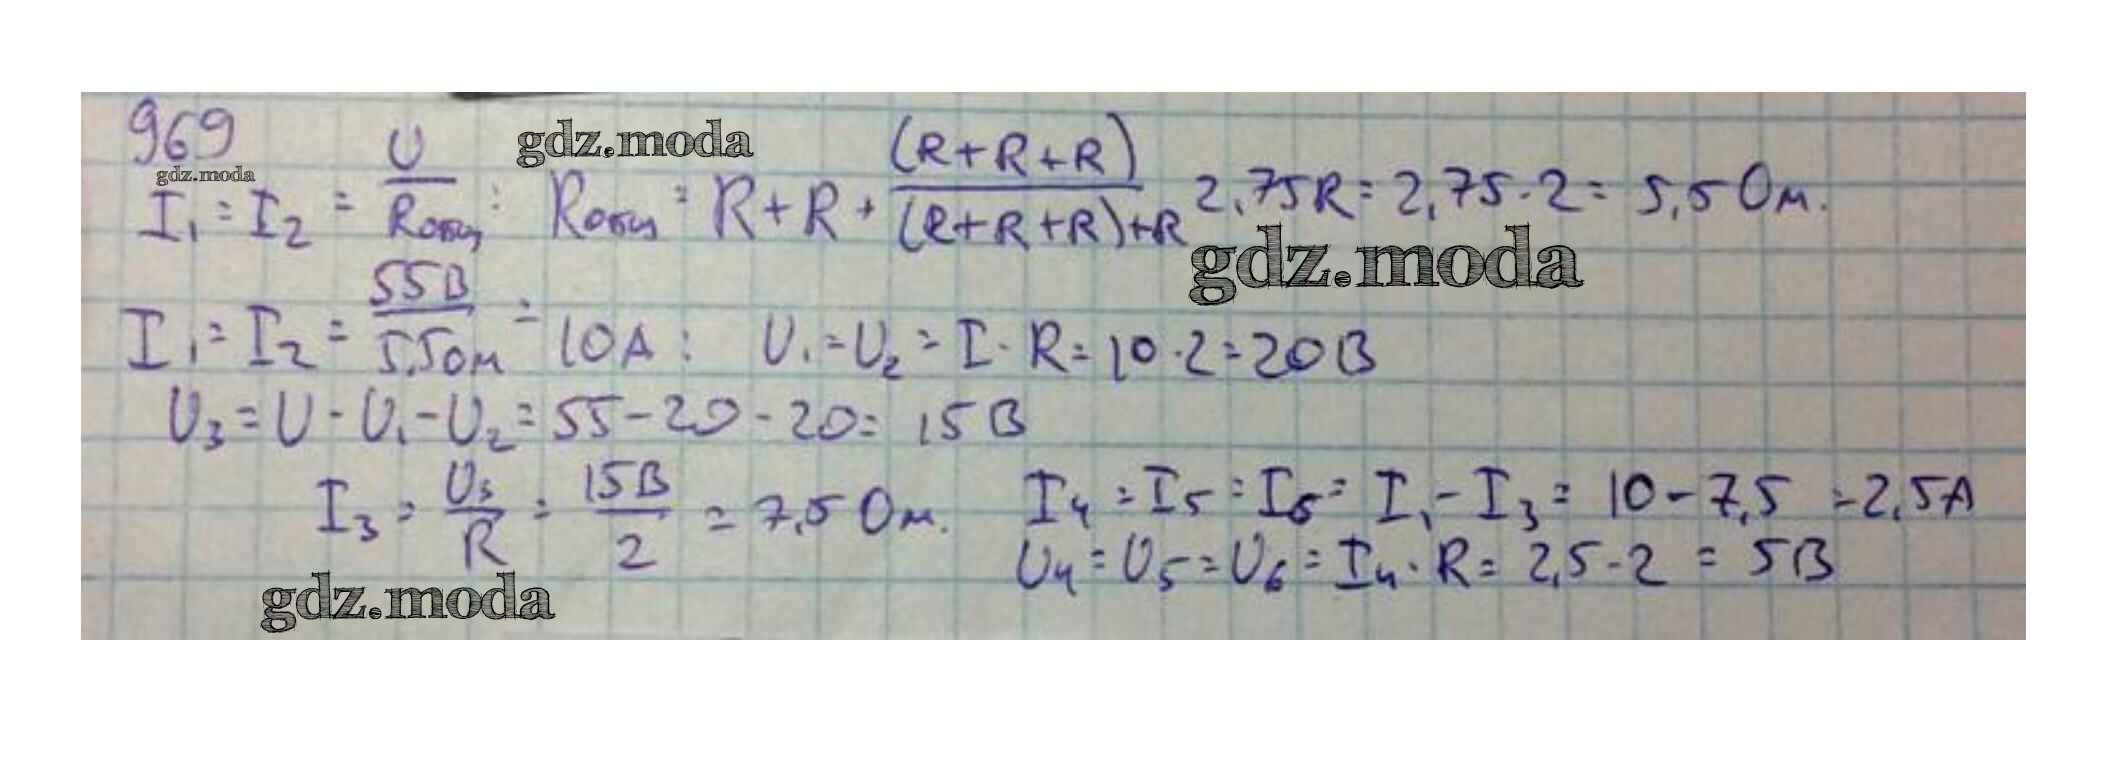 969
gdz.moda
gdz.moda
I₁ = I₂ = U/Rобщ ; Rобщ = R + R + (R+R+R)/(R+R+R)+R 2,75R = 2,75·2 = 5,5 Ом.
gdz.moda
I₁ = I₂ = 55В/5,5Ом = 10А ; U₁ = U₂ = I · R = 10 · 2 = 20В
U₃ = U - U₁ - U₂ = 55 - 20 - 20 = 15В
I₃ = U₃/R = 15В/2 = 7,5 Ом.
I₄ = I₅ = I₆ = I₁ - I₃ = 10 - 7,5 = 2,5А
U₄ = U₅ = U₆ = I₄ · R = 2,5 · 2 = 5В
gdz.moda